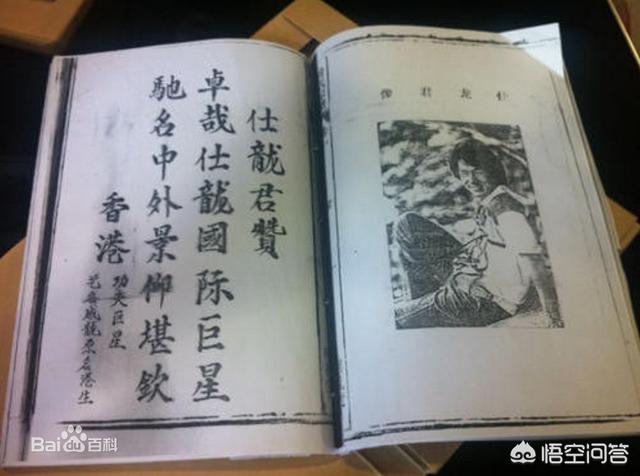 仕龙君像
仕龍君贊
卓哉仕龍國际巨星
馳名中外景仰堪欽
香港
功夫巨星
艺名成龍原名港生
Bai du 百科
悟空问答